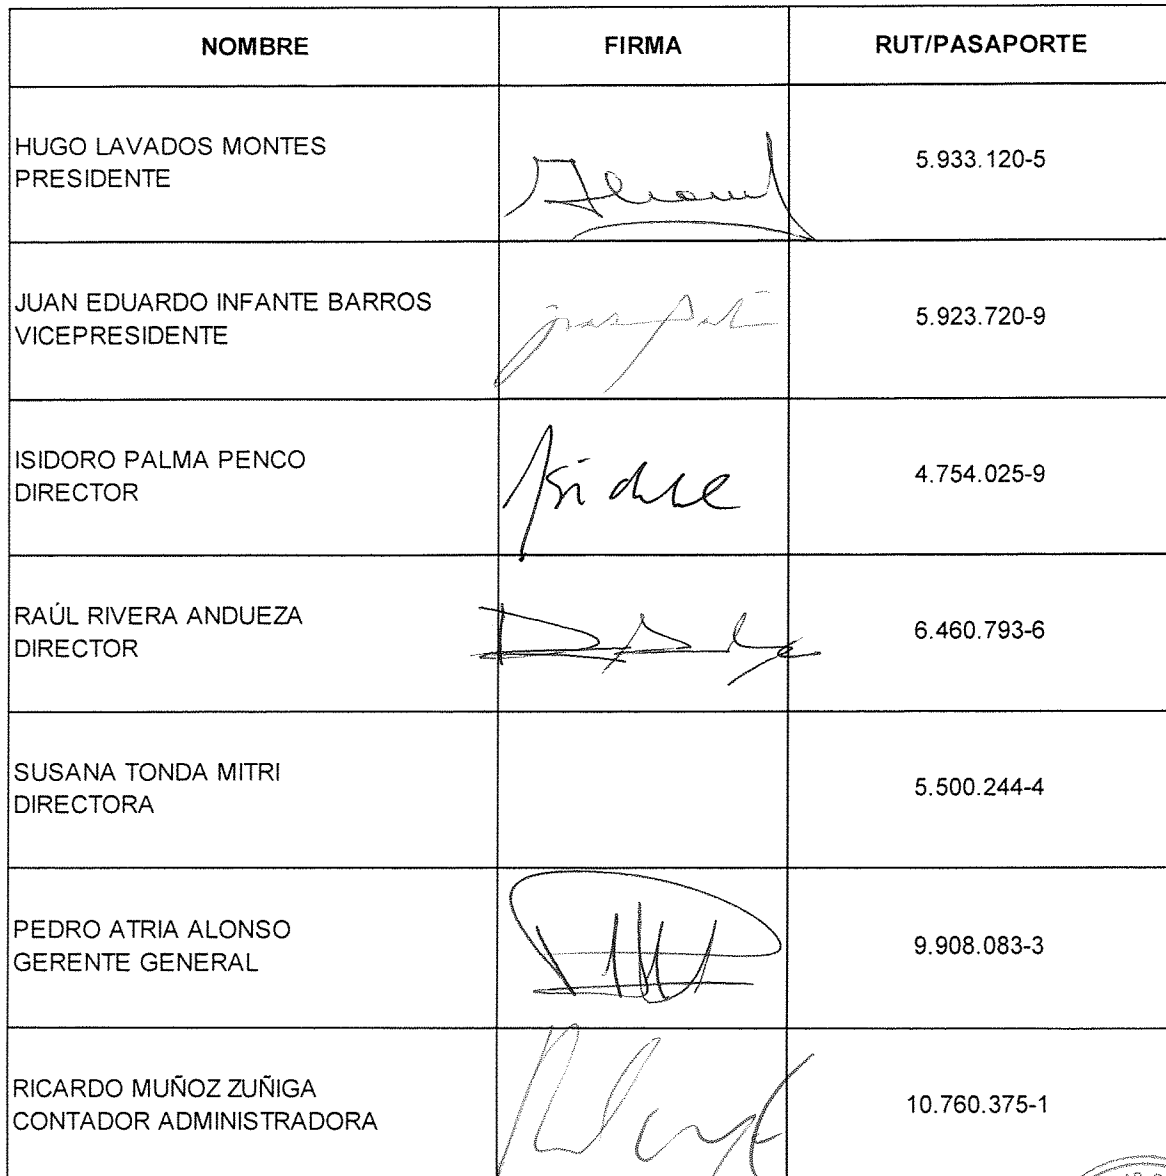 NOMBRE FIRMA RUT/PASAPORTE
HUGO LAVADOS MONTES
PRESIDENTE
5.933.120-5
JUAN EDUARDO INFANTE BARROS
VICEPRESIDENTE
5.923.720-9
ISIDORO PALMA PENCO
DIRECTOR
Isidoro
4.754.025-9
RAÚL RIVERA ANDUEZA
DIRECTOR
6.460.793-6
SUSANA TONDA MITRI
DIRECTORA
5.500.244-4
PEDRO ATRIA ALONSO
GERENTE GENERAL
9.908.083-3
RICARDO MUÑOZ ZUÑIGA
CONTADOR ADMINISTRADORA
10.760.375-1